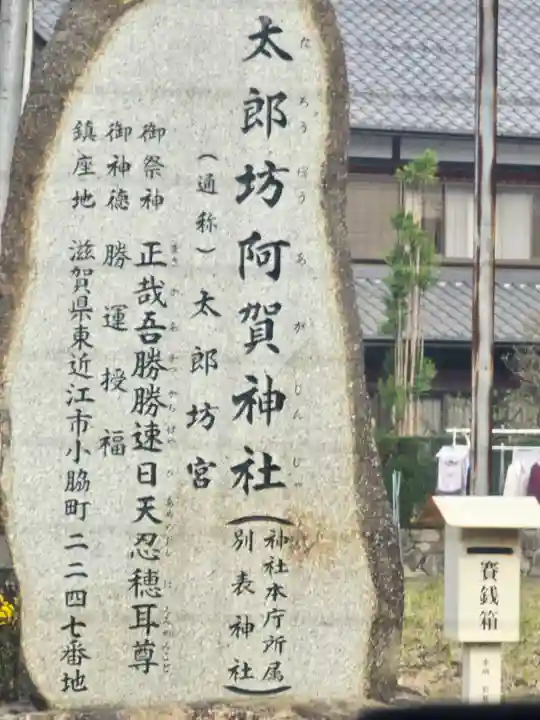 太郎坊阿賀神社
たろうぼうあがじんじゃ
(神社本庁所属
別表神社)
(通称) 太郎坊宮
御祭神 正哉吾勝勝速日天忍穂耳尊
御神徳 勝運授福
鎮座地 滋賀県東近江市小脇町二二四七番地
賽銭箱